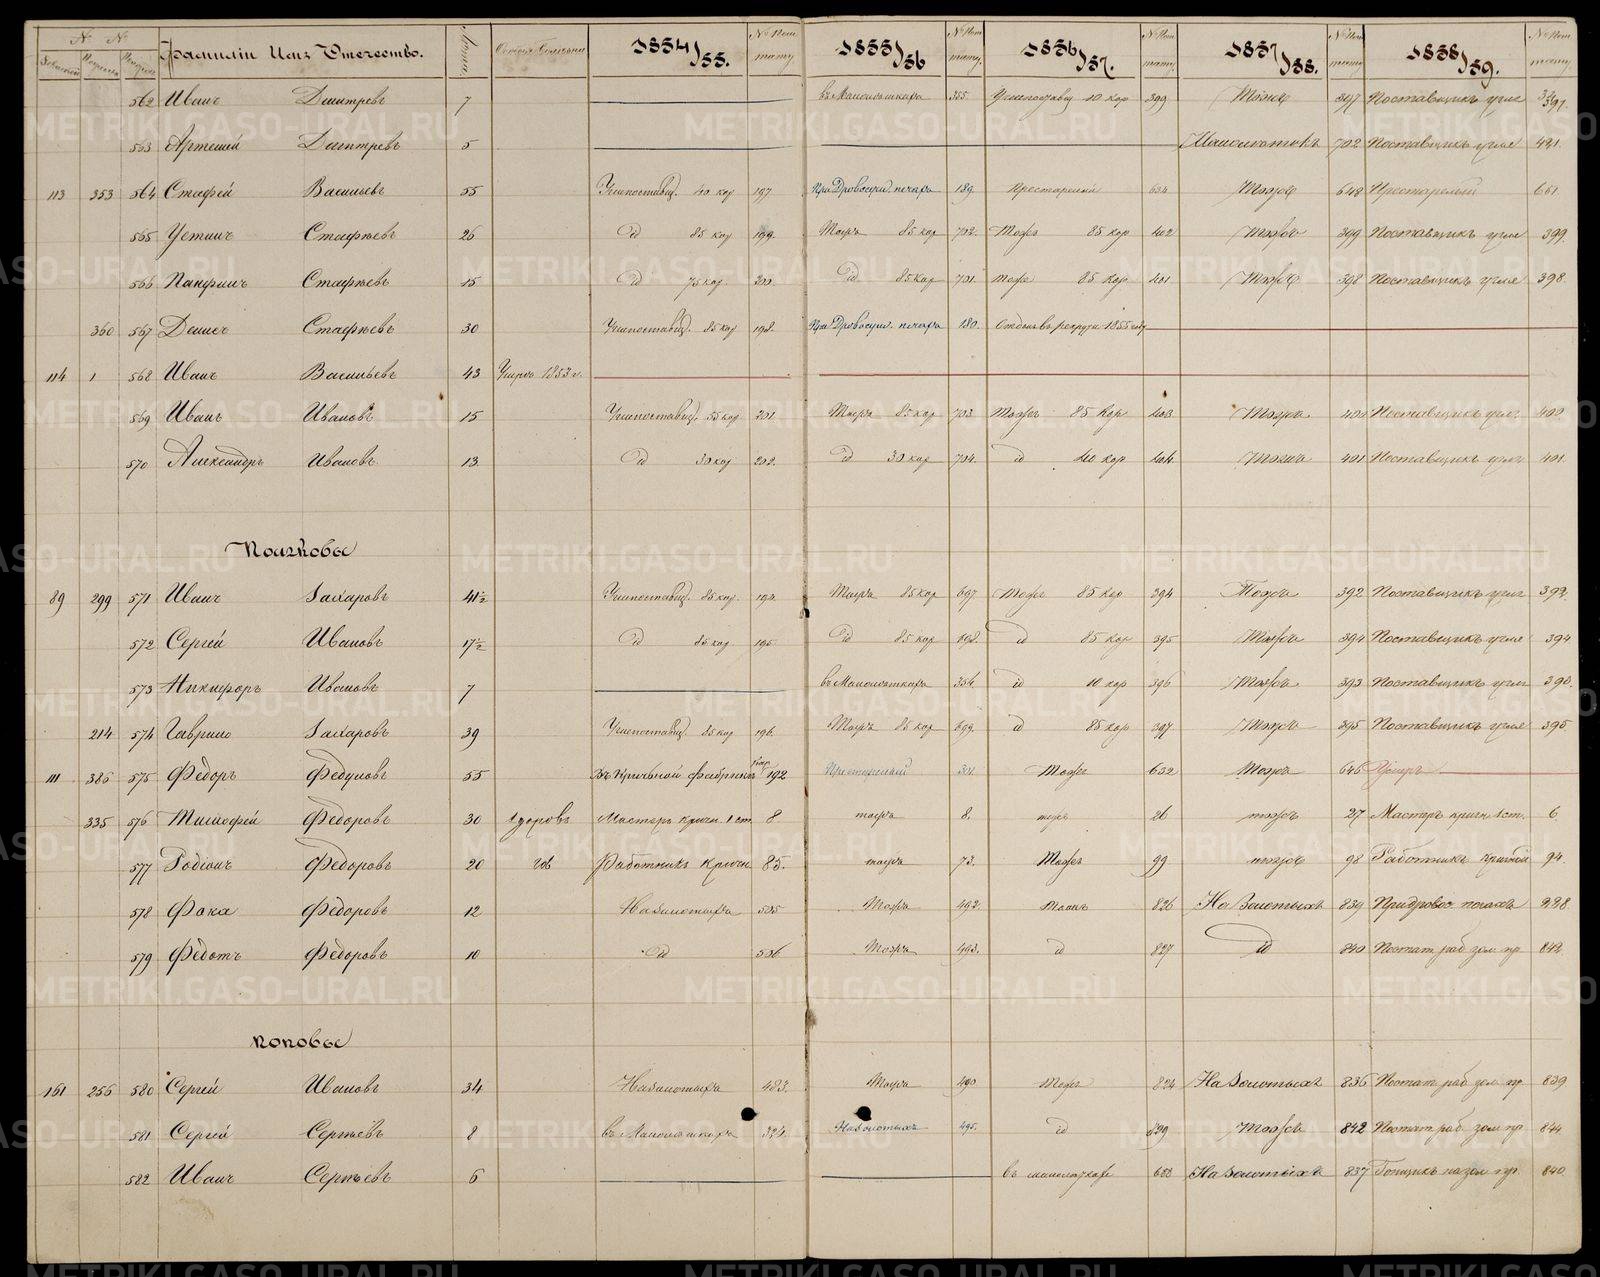 № №
Фамилiи Имя Отчество. Лѣта. 1854/55. № Пот. тату. 1855/56 № Пот. тату. 1856/57. № Пот. тату. 1857/58. № Пот. тату 1858/59. № Пот. тату.
562 Иванъ Дмитрiевъ 7 въ Малолѣткахъ 355. 10 кор 399 Тоже 397 Поставщикъ угля 397.
563 Артемiй Дмитрiевъ 5 Малолѣтокъ 702 Поставщикъ угля 421.
113 353 564 Стафей Васильевъ 55 Углепоставщ. 40 кор 197 При Дровосуш. печахъ 189. Престарелый 634 Тоже 648 Престарелый 661
565 Устинъ Стафѣевъ 26 id 85 кор 199. Тоже 85 кор 702. Тоже 85 кор 402 Тоже 399 Поставщикъ угля 399.
566 Панфилъ Стафѣевъ 15 id 75 кор. 200. id 85 кор 701. Тоже 85 кор 401 Тоже 398 Поставщикъ угля 398.
360 567 Денисъ Стафѣевъ 30 Углепоставщ. 85 кор 198. При Дровосуш. печахъ 180. Отданъ въ рекруты 1855 году
114 1 568 Иванъ Васильевъ 43 Умеръ 1853 г.
569 Иванъ Ивановъ 15 Углепоставщ. 55 кор 201. Тоже 85 кор 703 Тоже 85 кор 403 Тоже 400 Поставщикъ угля 400
570 Александръ Ивановъ 13. id 30 кор 202. id 30 кор 704. id 40 кор 404. Тоже 401 Поставщикъ угля 401.
Поляковы
89 299 571 Иванъ Захаровъ 41½ Углепоставщ. 85 кор. 194. Тоже 85 кор 697 Тоже 85 кор 394 Тоже 392 Поставщикъ угля 392.
572 Сергей Ивановъ 17½ id 85 кор. 195. id 85 кор 698. id 85 кор 395 Тоже 394 Поставщикъ угля 394
573 Никифоръ Ивановъ 7 въ Малолѣткахъ 354. id 10 кор 396 Тоже 393 Поставщикъ угля 390.
214 574 Гаврило Захаровъ 39 Углепоставщ. 85 кор 196. Тоже 85 кор 699. id 85 кор 397 Тоже 395 Поставщикъ угля 395.
111 386 575 Федоръ Федуловъ 55 Въ кричной фабрикѣ 192 Престарелый 321. Тоже 632 Тоже 646 Умеръ
335 576 Тимофей Федоровъ 30 Здоровъ Мастеръ кричн. 1 ст. 8 тоже 8. тоже 26 тоже 27 Мастеръ кричн. 1 ст. 6.
577 Родiонъ Федоровъ 20 Работникъ кричн 85. тоже 73. Тоже 99 тоже 98 Работникъ кричной 94.
578 Фока Федоровъ 12 На золотыхъ 505 Тоже 492. Тоже 826 На Золотыхъ 839 При дровос печахъ 228.
579 Федотъ Федоровъ 10 id 506 Тоже 493. id 827 id 840 Постат. раб. зол. пр 842.
Поповы
161 256 580 Сергей Ивановъ 34 На золотыхъ 483. Тоже 490 Тоже 824 На Золотыхъ 836 Постат. раб. зол. пр 839
581 Сергей Сергѣевъ 8 въ Малолѣткахъ 324. На золотыхъ 495. id 829 Тоже 842 Постат. раб. зол. пр 844.
582 Иванъ Сергѣевъ 6 въ малолѣткахъ 683 На Золотыхъ 837 Гонщикъ на зол. пр. 840.
METRIKI.GASO-URAL.RU